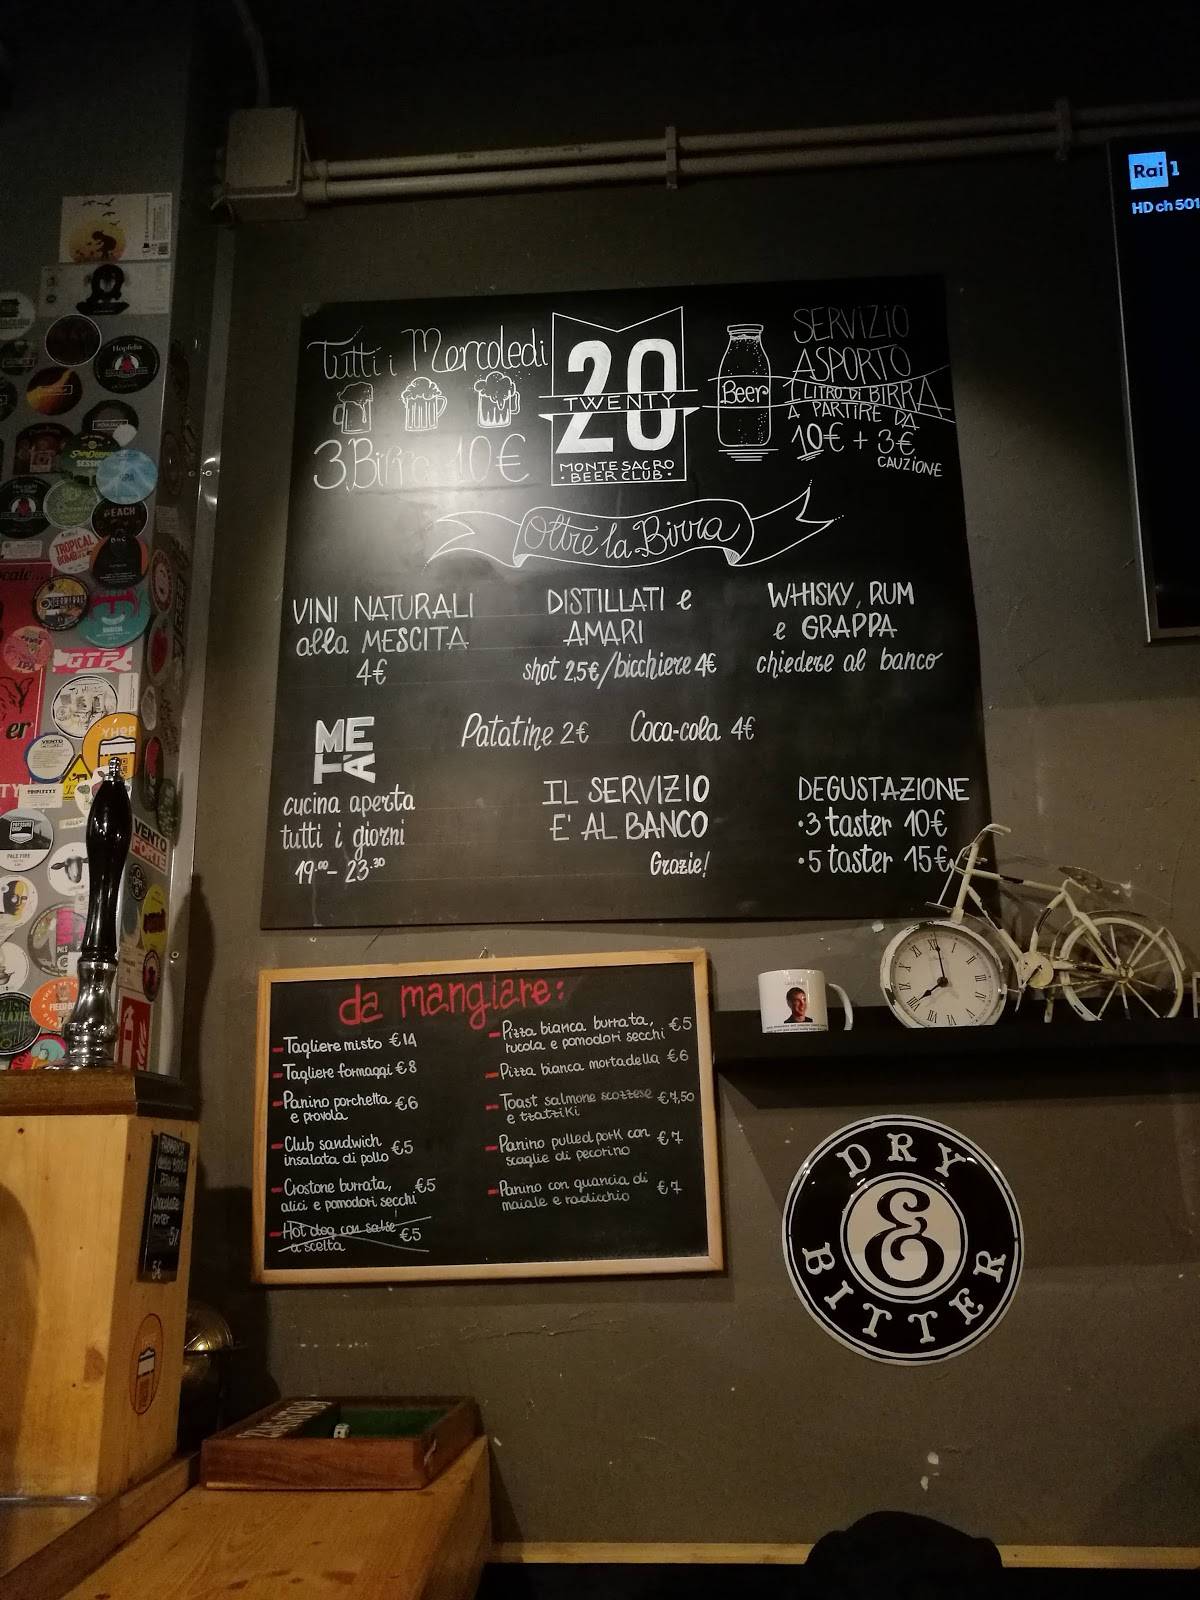 Rai 1
HD ch 501
Tutti i Mercoledì
3 Birre 10€
20
TWENTY
MONTESACRO
BEER CLUB
Beer
SERVIZIO
ASPORTO
1 LITRO DI BIRRA
A PARTIRE DA
10€ + 3€
CAUZIONE
Oltre la Birra
VINI NATURALI
alla MESCITA
4€
DISTILLATI e
AMARI
shot 2,5€/bicchiere 4€
WHISKY, RUM
e GRAPPA
chiedere al banco
META
Patatine 2€
Coca-cola 4€
cucina aperta
tutti i giorni
19.00 - 23.30
IL SERVIZIO
E' AL BANCO
Grazie!
DEGUSTAZIONE
• 3 taster 10€
• 5 taster 15€
da mangiare:
- Tagliere misto €14
- Tagliere formaggi €8
- Panino porchetta €6
e provola
- Club sandwich €5
insalata di pollo
- Crostone burrata, €5
alici e pomodori secchi
- Hot dog con salse €5
a scelta
- Pizza bianca burrata, €5
rucola e pomodori secchi
- Pizza bianca mortadella €6
- Toast salmone scozzese €7,50
e tzatziki
- Panino pulled pork con €7
scaglie di pecorino
- Panino con guancia di €7
maiale e radicchio
DRY
&
BITTER
Hopfelia
SESSION
IPA
PEACH
TROPICAL
BOMB
GTP
er
VENTO
FORTE
PALE FIRE
Chocolate
porter
5€